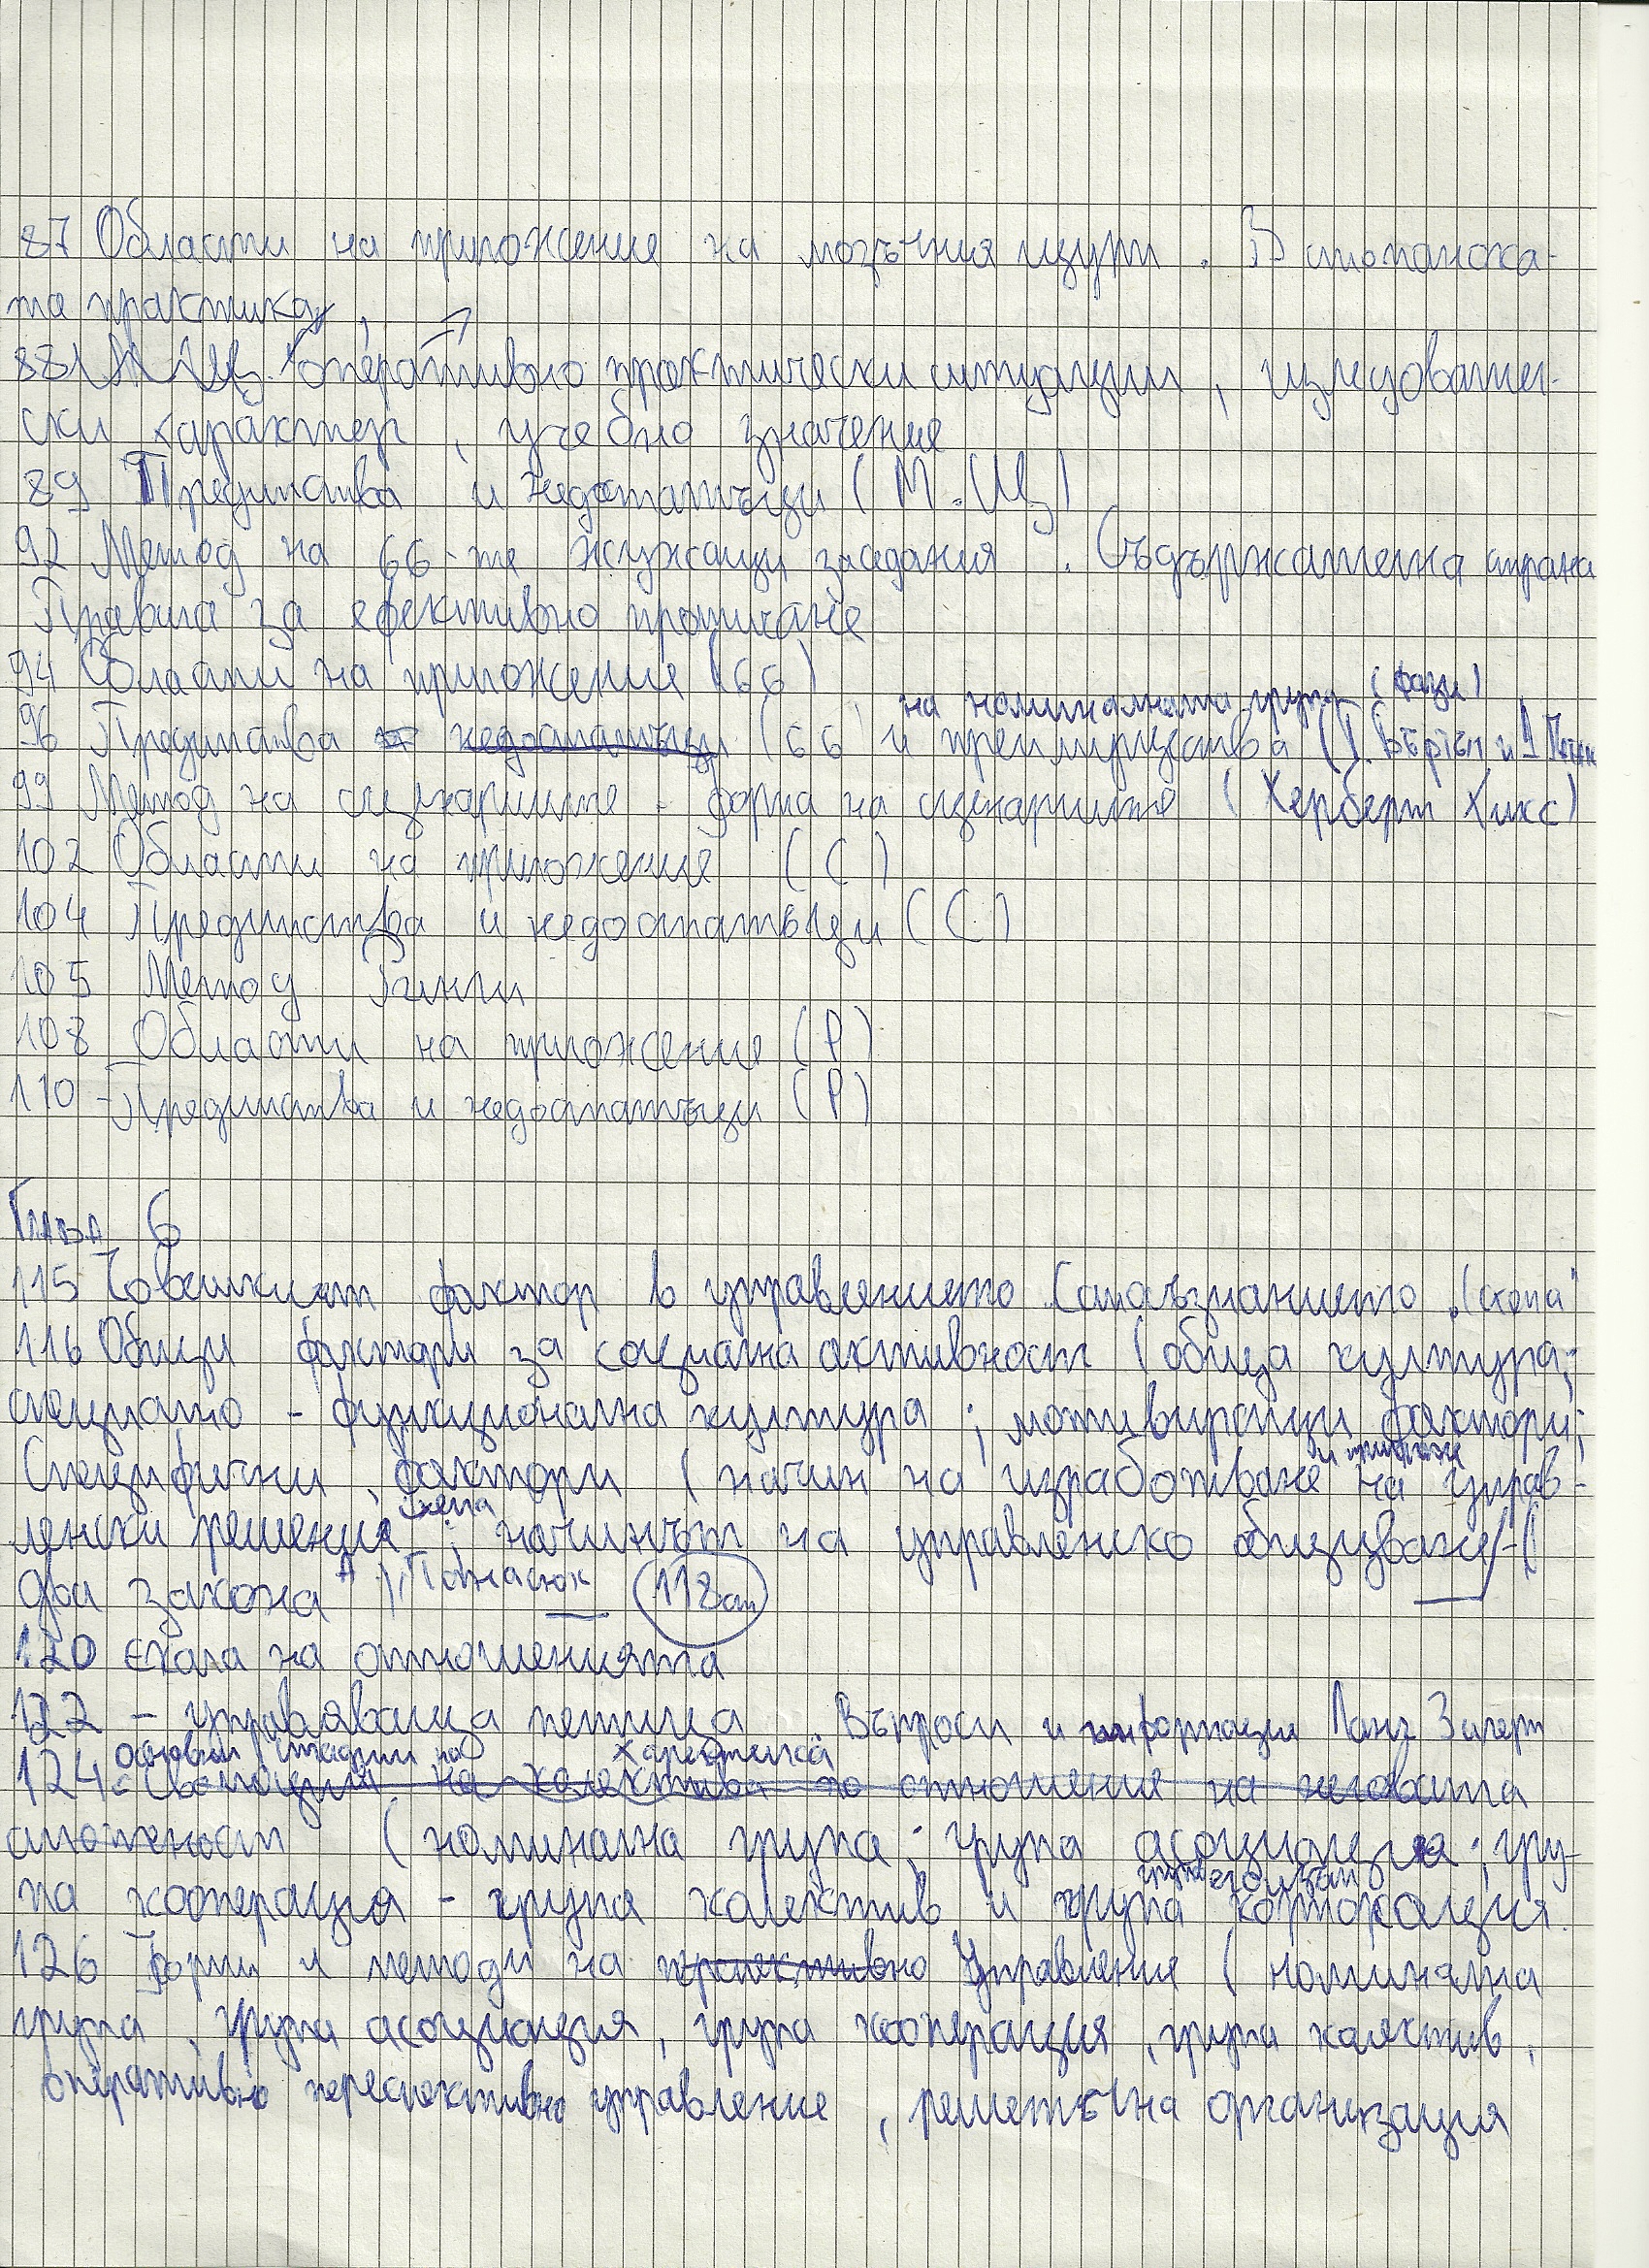 87 Области на приложение на мозъчния щурм. В стопанска-
та практика,
881 оперативно практически ситуации, изследовател-
ски характер, учебно значение
89 Предимства и недостатъци (М.Щ)
92 Метод на 66-те жужащи заседания. Съдържателна страна
Правила за ефективно протичане
94 Области на приложение (66)
на номиналната група (фази)
96 Предимства недостатъци (66 и преимущества
99 Метод на сценариите - форма на сценариите (Херберт Хикс)
102 Области на приложение (С)
104 Предимства и недостатъци (С)
105 Метод Ринги
108 Области на приложение (Р)
110 - Предимства и недостатъци (Р)
Глава 6
115 Човешкият фактор в управлението Самосъзнанието „Скепа"
116 Общи фактори за социална активност (обща култура;
специално - функционална култура; мотивиращи фактори;
Специфични фактори (начин на изработване на управ-
схема
ленски решения; начинът на управленско общуване)-(
два закона 118 ст
120 Скала на отношенията
122 - управляваща петица. Въпроси и информации Ланг Зигерт
Основни стадии на характерила
124 Еволюция на колектива по отношение на неговата
сплотеност (номинална група; група асоциация; гру-
па кооперация - група колектив и група корпорация.
126 Форми и методи на перспективно Управление (номинална
група, група асоциация, група кооперация, група колектив,
оперативно перспективно управление, решетъчна организация